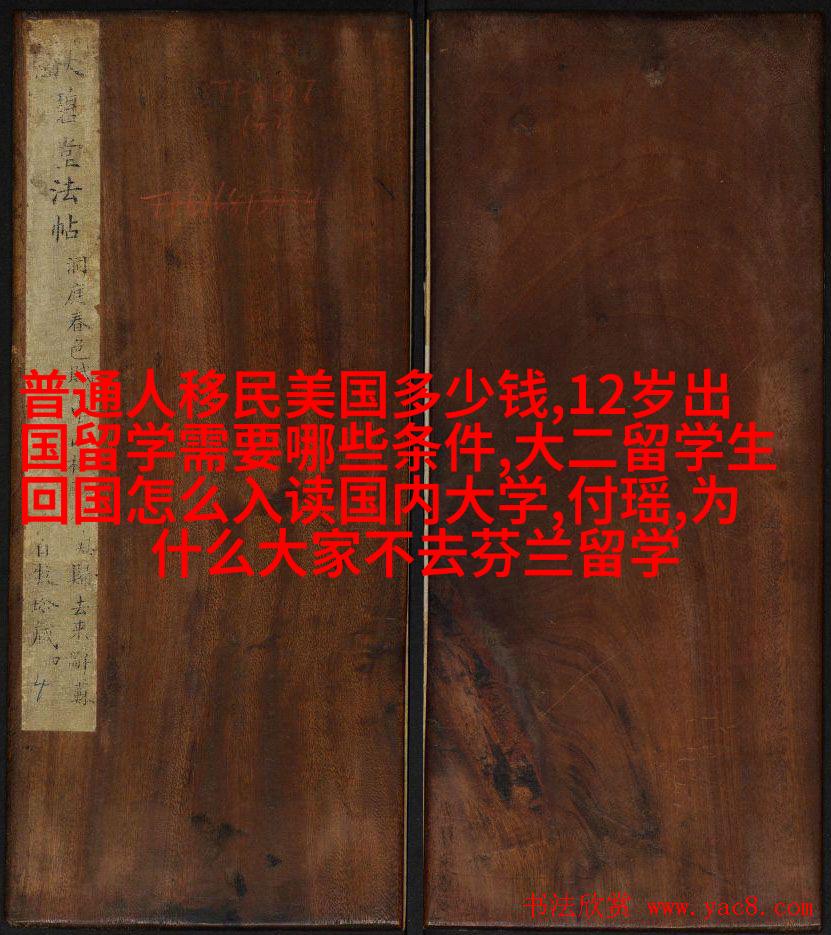 碧堂法帖
洞庭春色賦
歸去來辭
普通人移民美国多少钱,12岁出
国留学需要哪些条件,大二留学生
回国怎么入读国内大学,付瑶,为
什么大家不去芬兰留学
书法欣赏 www.yac8.com